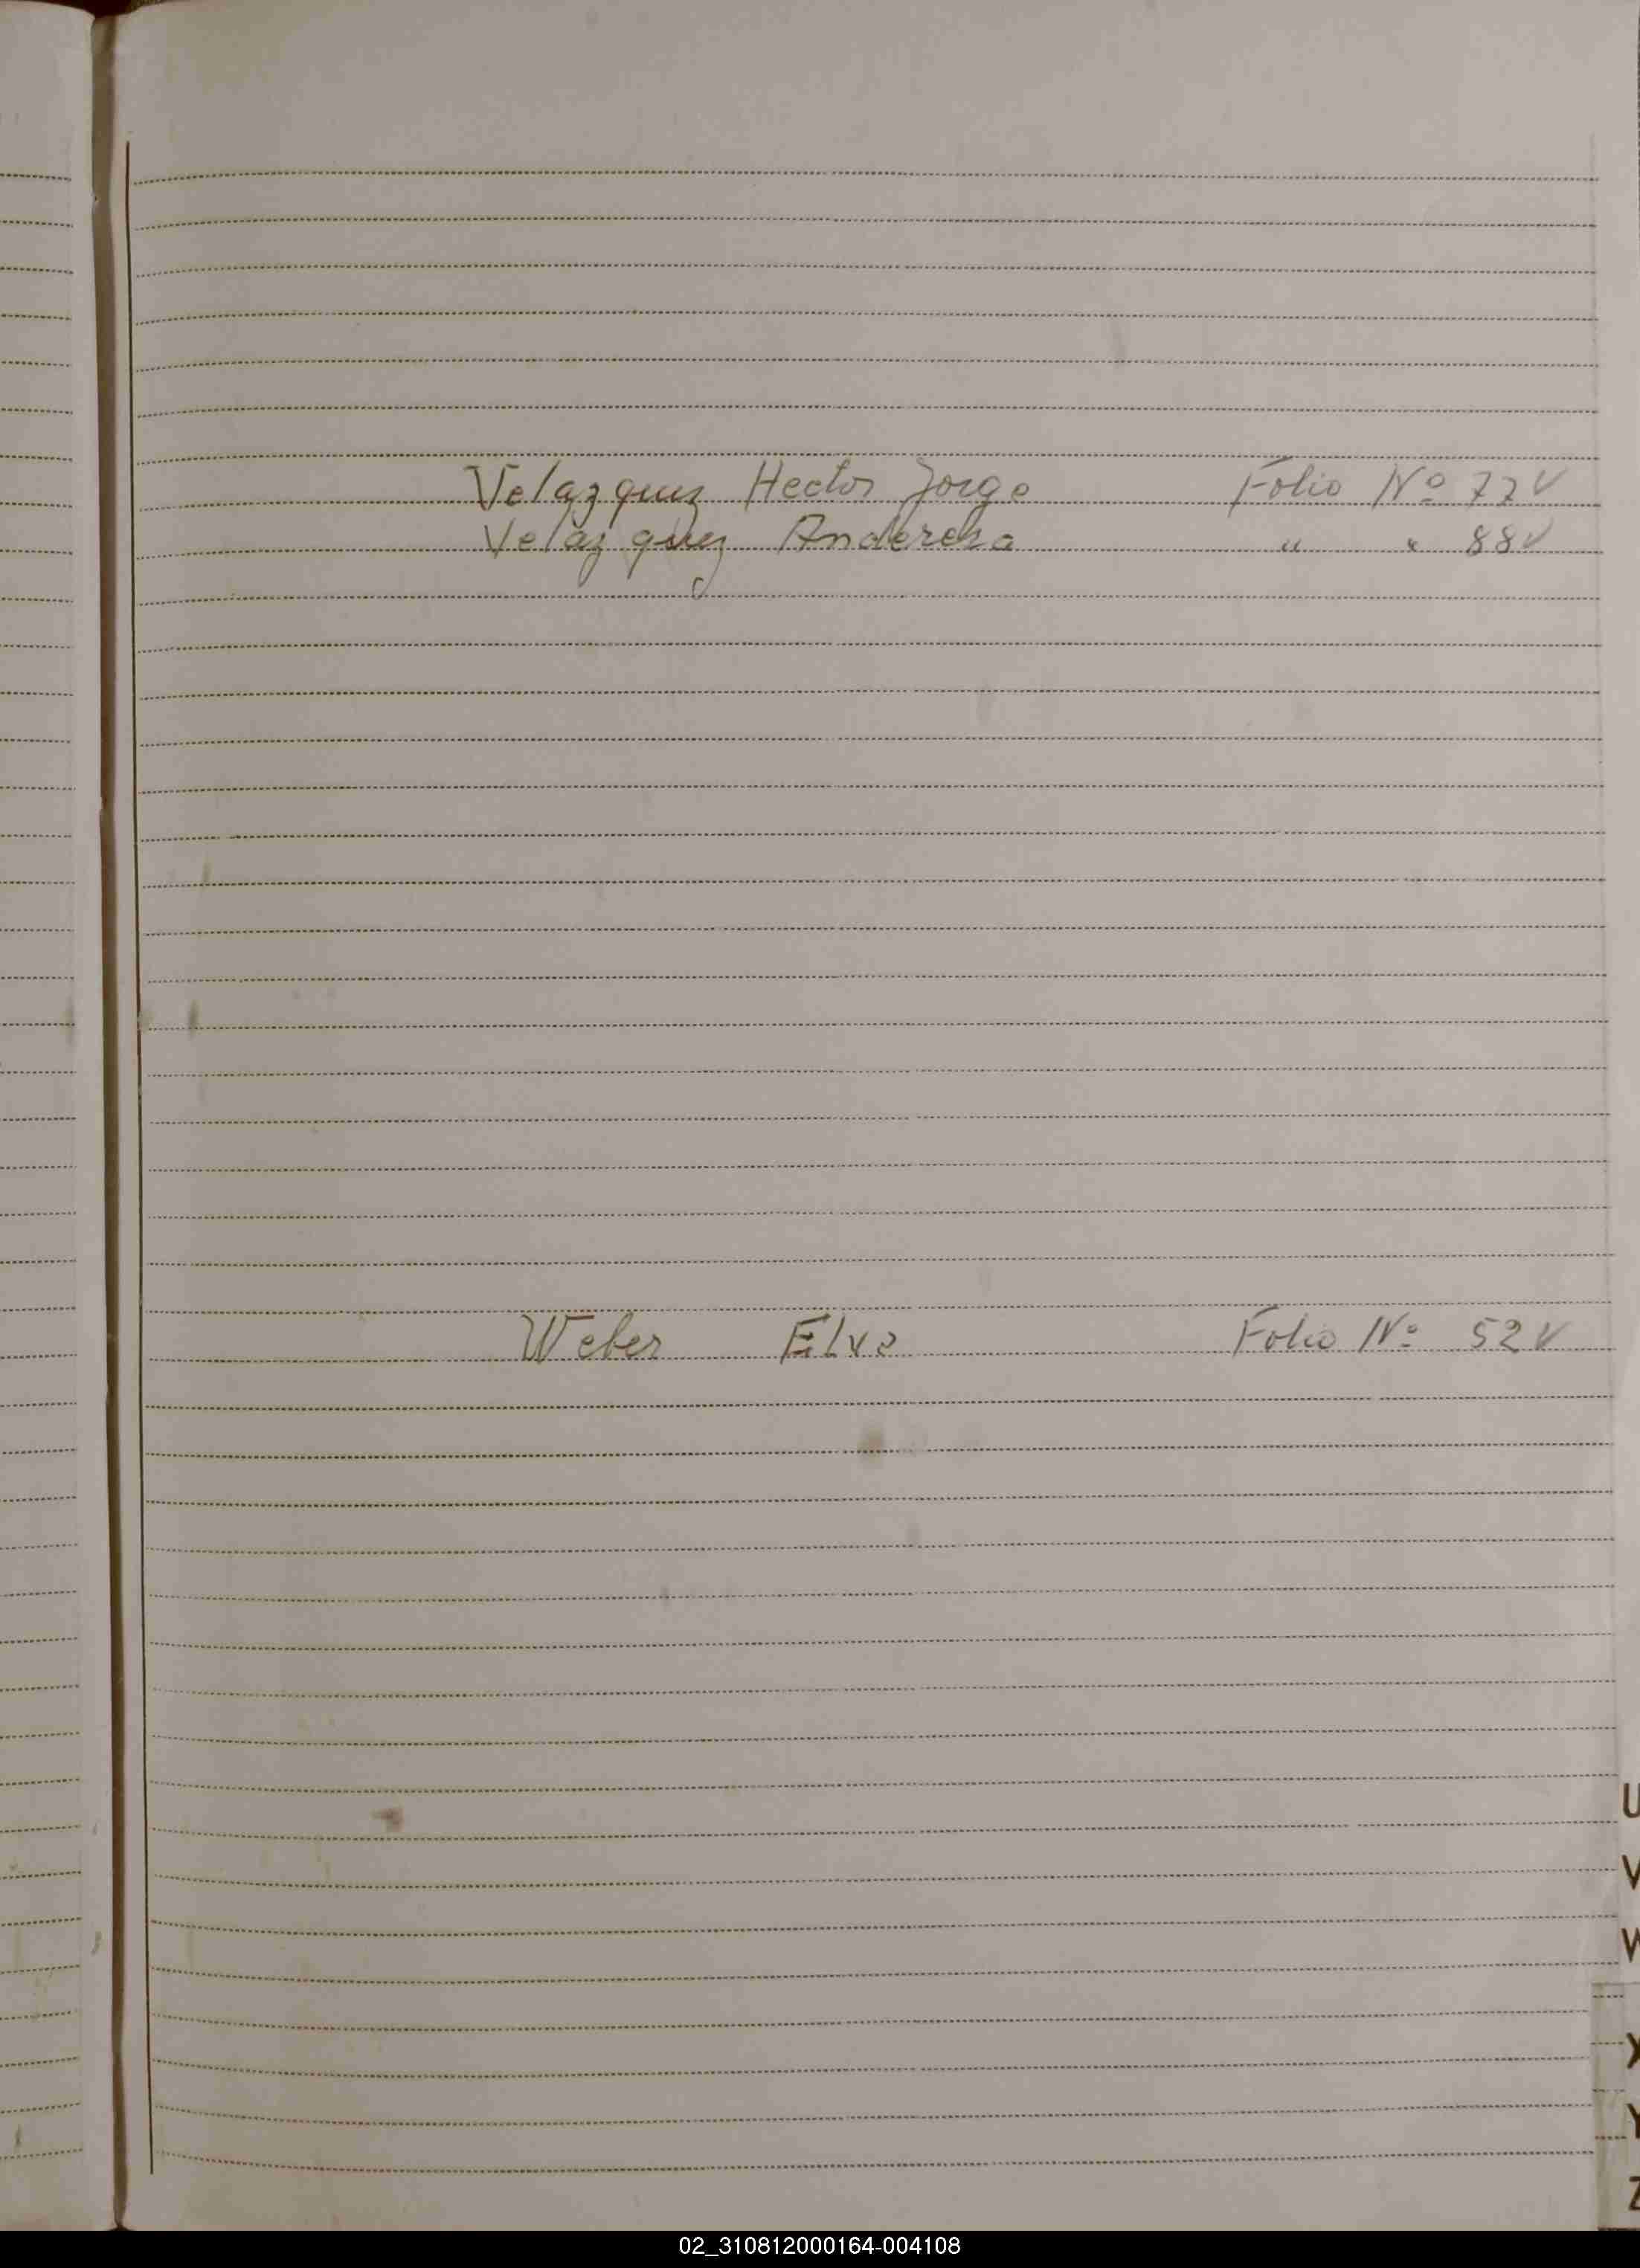 Velazquez Hector Jorge Folio Nº 77 V
Velazquez Anderesa " " 88 V
Weber Elva Folio Nº 52 V
U
V
W
X
Y
Z
02_310812000164-004108